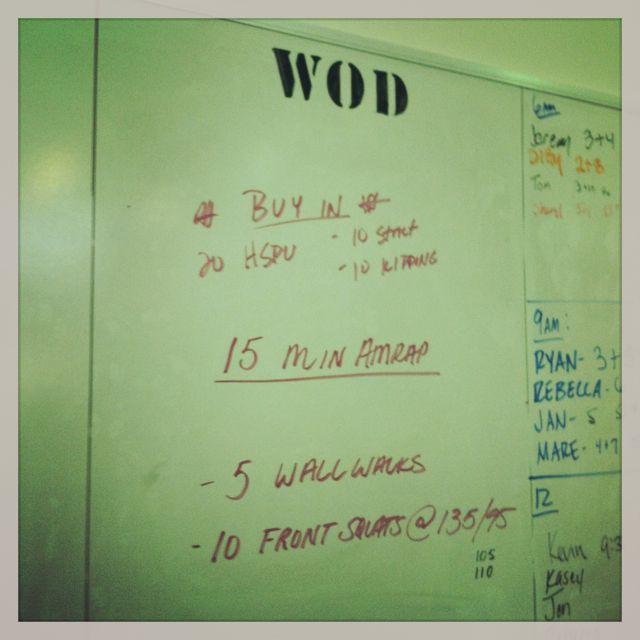 WOD
# BUY IN #
20 HSPU - 10 STRICT
- 10 KIPPING
15 MIN AMRAP
- 5 WALLWALKS
- 10 FRONT SQUATS @ 135/95
105
110
6am
Jeremy 3+4
Tom
9AM:
RYAN- 3+
REBECCA-
JAN- 5
MARE- 4+7
12
Kevin 9:3
Kasey
Jen